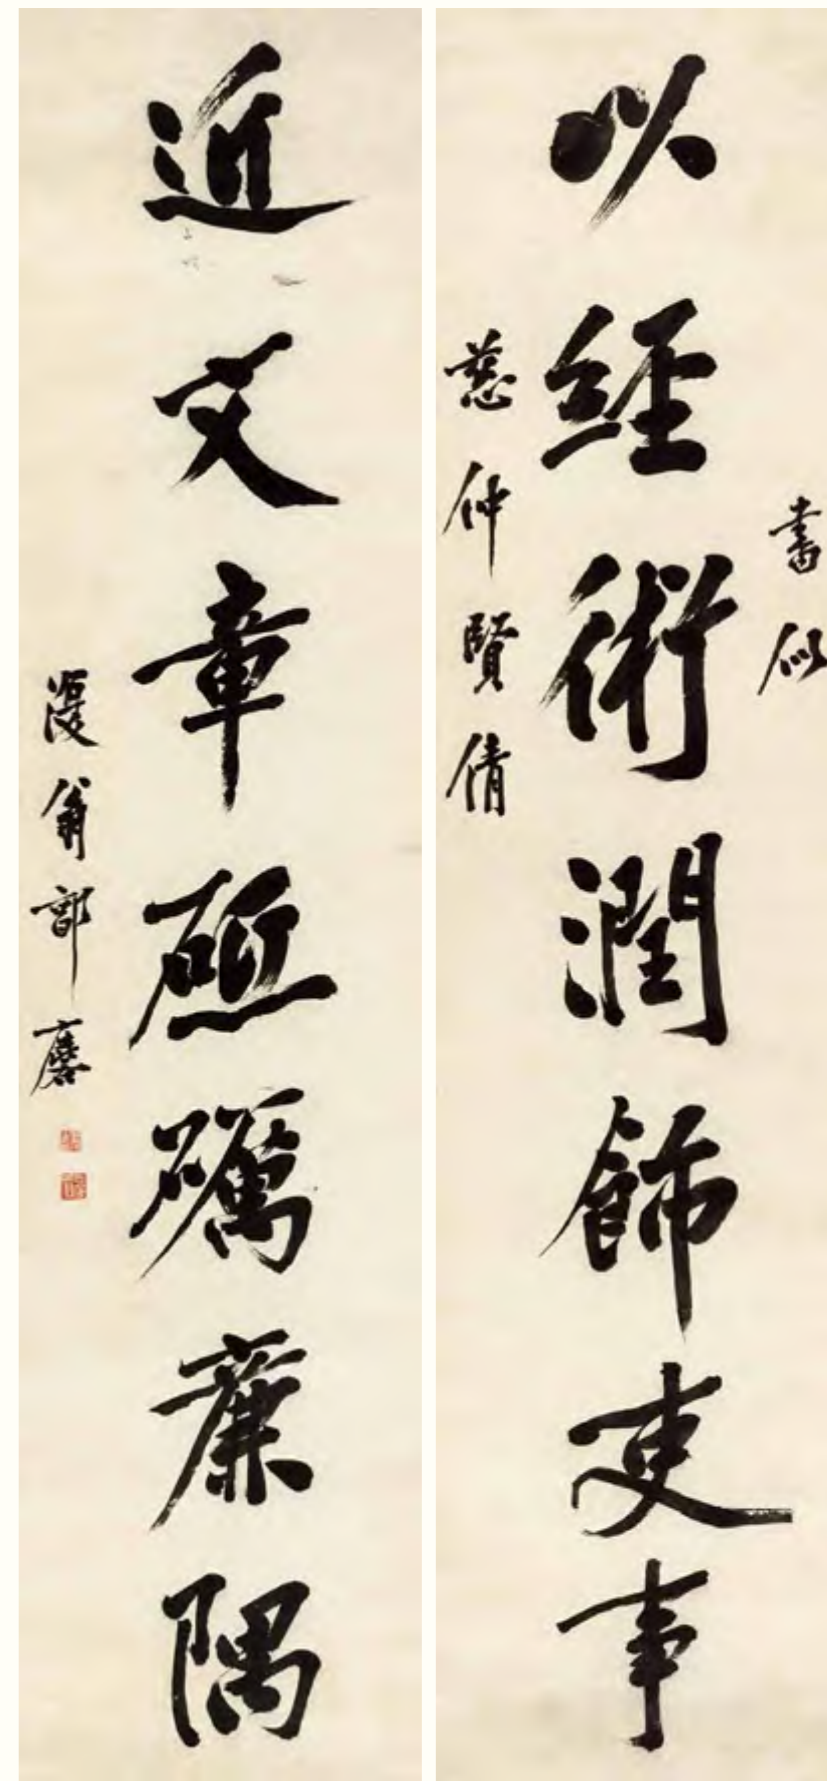 以經術潤飾吏事
書似
慈仲賢倩
近文章砥礪廉隅
復翁郭麐